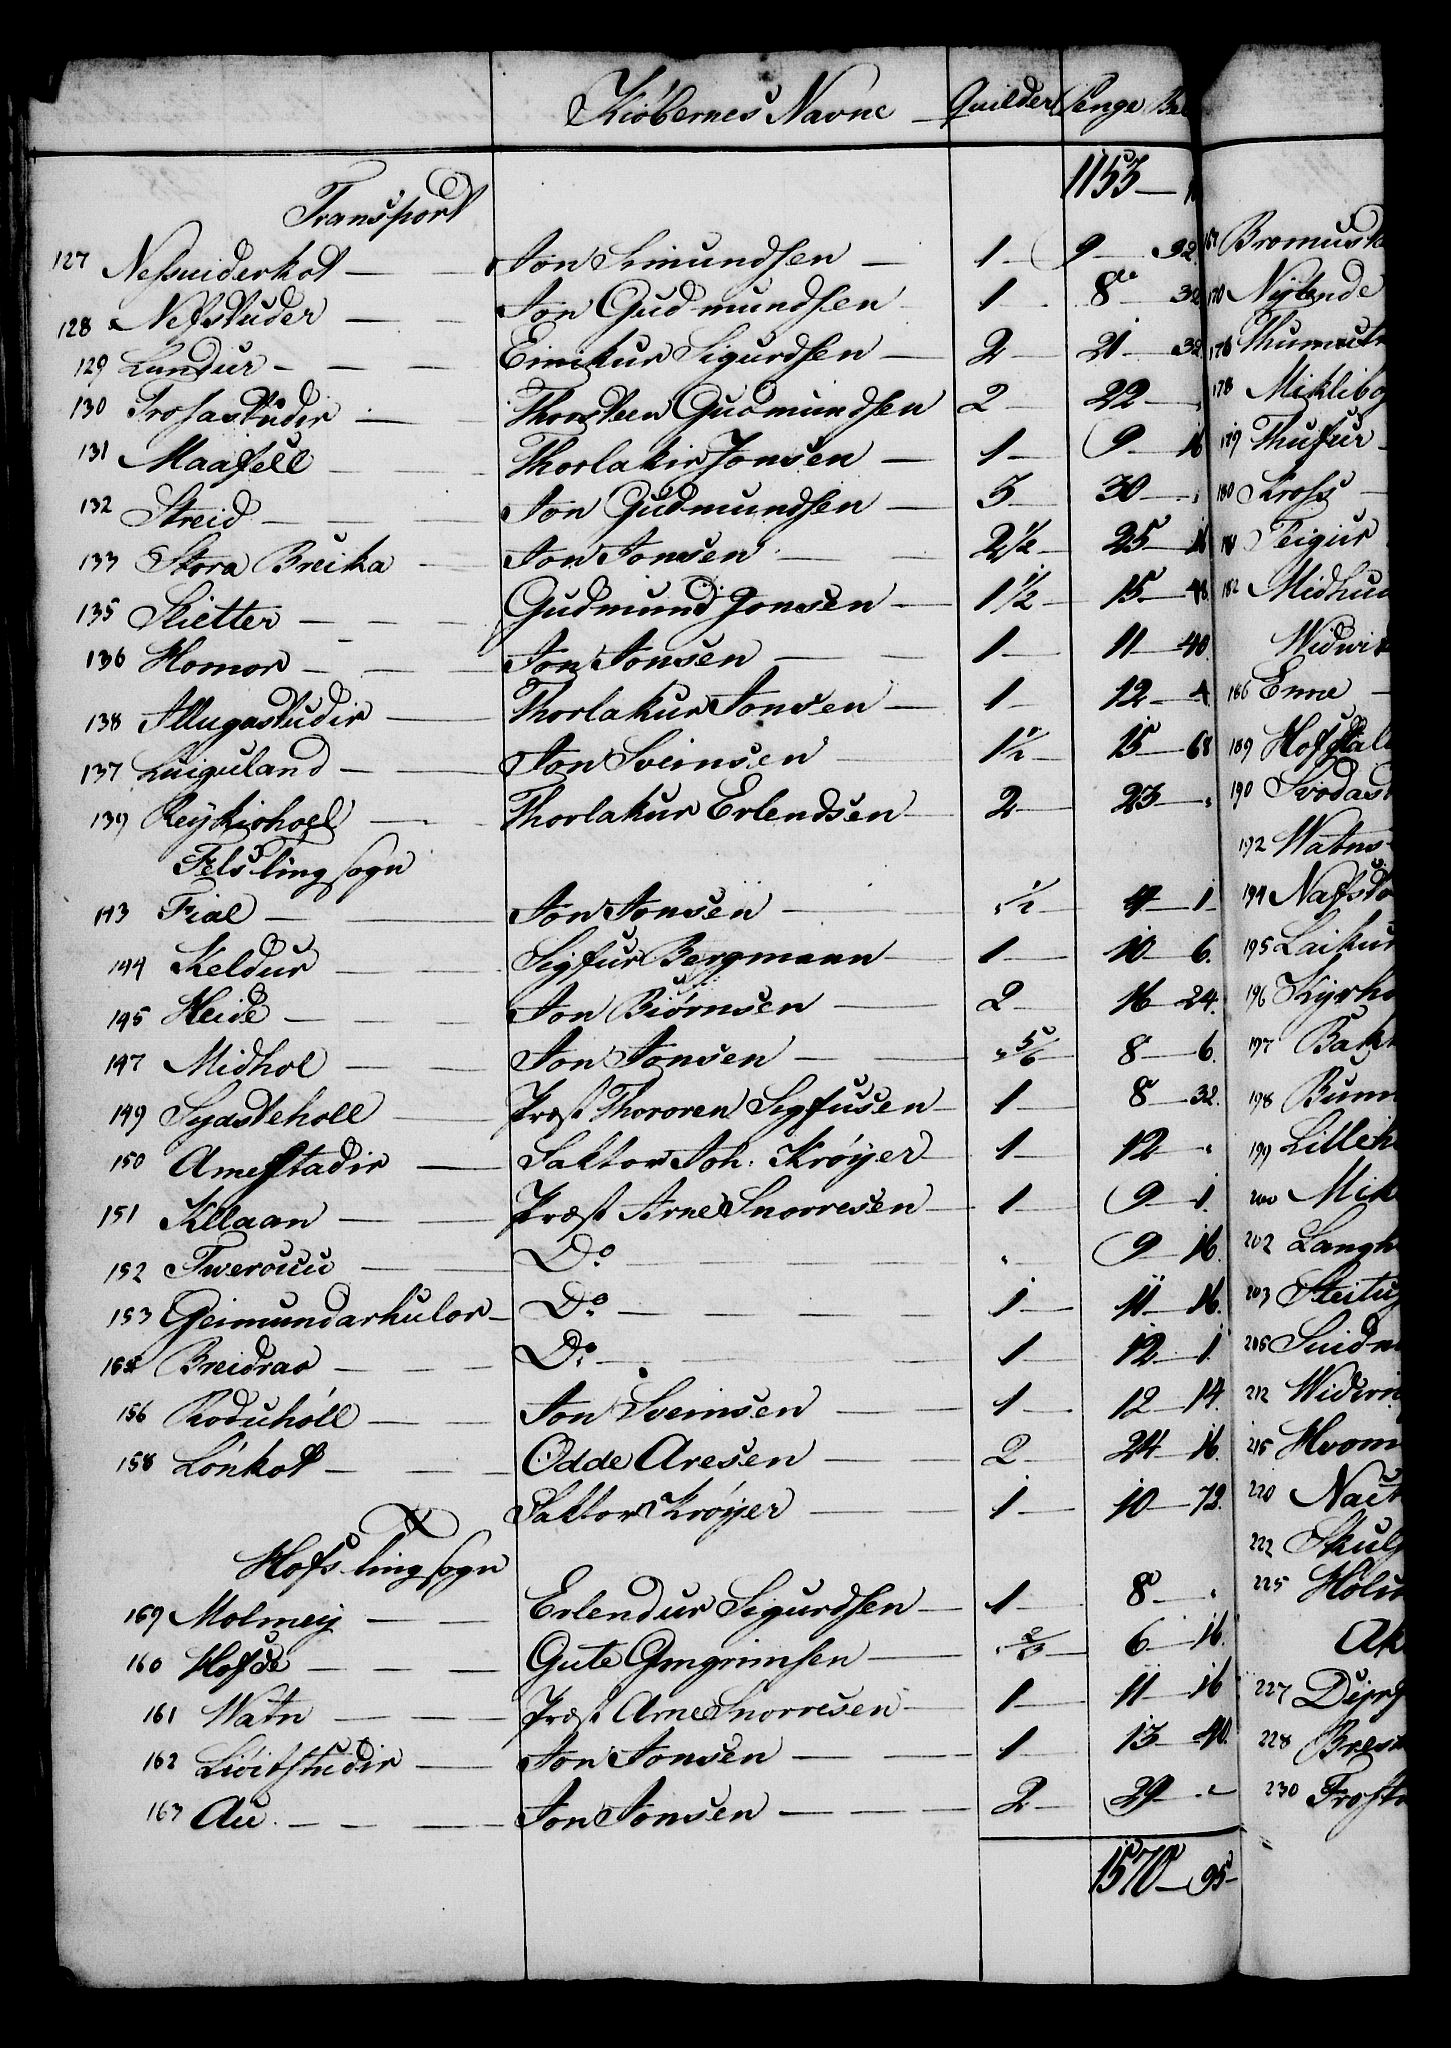 Kiøbernes Navne Quilder Penge Bel
Transport 1153
127 Nefsuiderkot Jon Simundsen 1 9 92
128 Nefstuder Jon Gudmundsen 1 8 32
129 Lundur Eirikur Sigurdsen 2 21 32
130 Trosastudir Thorsteen Gudmundsen 2 22
131 Maafell Thorlakir Jonsen 1 9 16
132 Streid Jon Gudmundsen 3 30
133 Stora Breika Jon Jonsen 2½ 25 16
135 Slietter Gudmund Jonsen 1½ 15 48
136 Homor Jon Jonsen 1 11 40
138 Illugastudir Thorlakur Jonsen 1 12 4
137 Luiguland Jon Sveinsen 1½ 15 68
139 Reykiohoel Thorlakur Erlendsen 2 23
Fels ting sogn
143 Fial Jon Jonsen ½ 4 1
144 Keldur Sigfur Bergmann 1 10 6
145 Heide Jon Biørnsen 2 16 24
147 Midhol Jon Jonsen 5/6 8 6
149 Sydsteholl Præst Thororen Sigfusen 1 8 32
150 Arnestadir Faktor Joh. Krøyer 1 12
151 Kllaan Præst Arne Snorresen 1 9 1
152 Twerouu Do 9 16
153 Geimundarhulor Do 1 11 16
154 Breidrao Do 1 12 1
156 Roduhóll Jon Sveinsen 1 12 14
158 Lónkot Odde Aresen 2 24 16
Faktor Krøyer 1 10 72
Hofs ting sogn
159 Molmeij Erlendur Sigurdsen 1 8
160 Hofde Gute Gongrimsen 2/3 6 16
161 Watn Præst Arne Snorresen 1 11 16
162 Liöitstudir Jon Jonsen 1 13 40
163 Au Jon Jonsen 2 29
1570 95
Bromusk
170 Nylende
176 Thumutr
178 Miklibo
179 Thufur
180 Kross
181 Teigur
182 Midhu
Widwik
186 Enne
189 Hofstal
190 Svodast
192 Watns
194 Nafsto
195 Laikur
196 Kyrho
197 Bakk
198 Bunn
199 Lillek
200 Mik
202 Langh
203 Sleitu
206 Suidn
212 Widwi
215 Hvam
220 Naut
222 Skul
225 Hólu
Ak
227 Dyrf
228 Bres
230 Frost